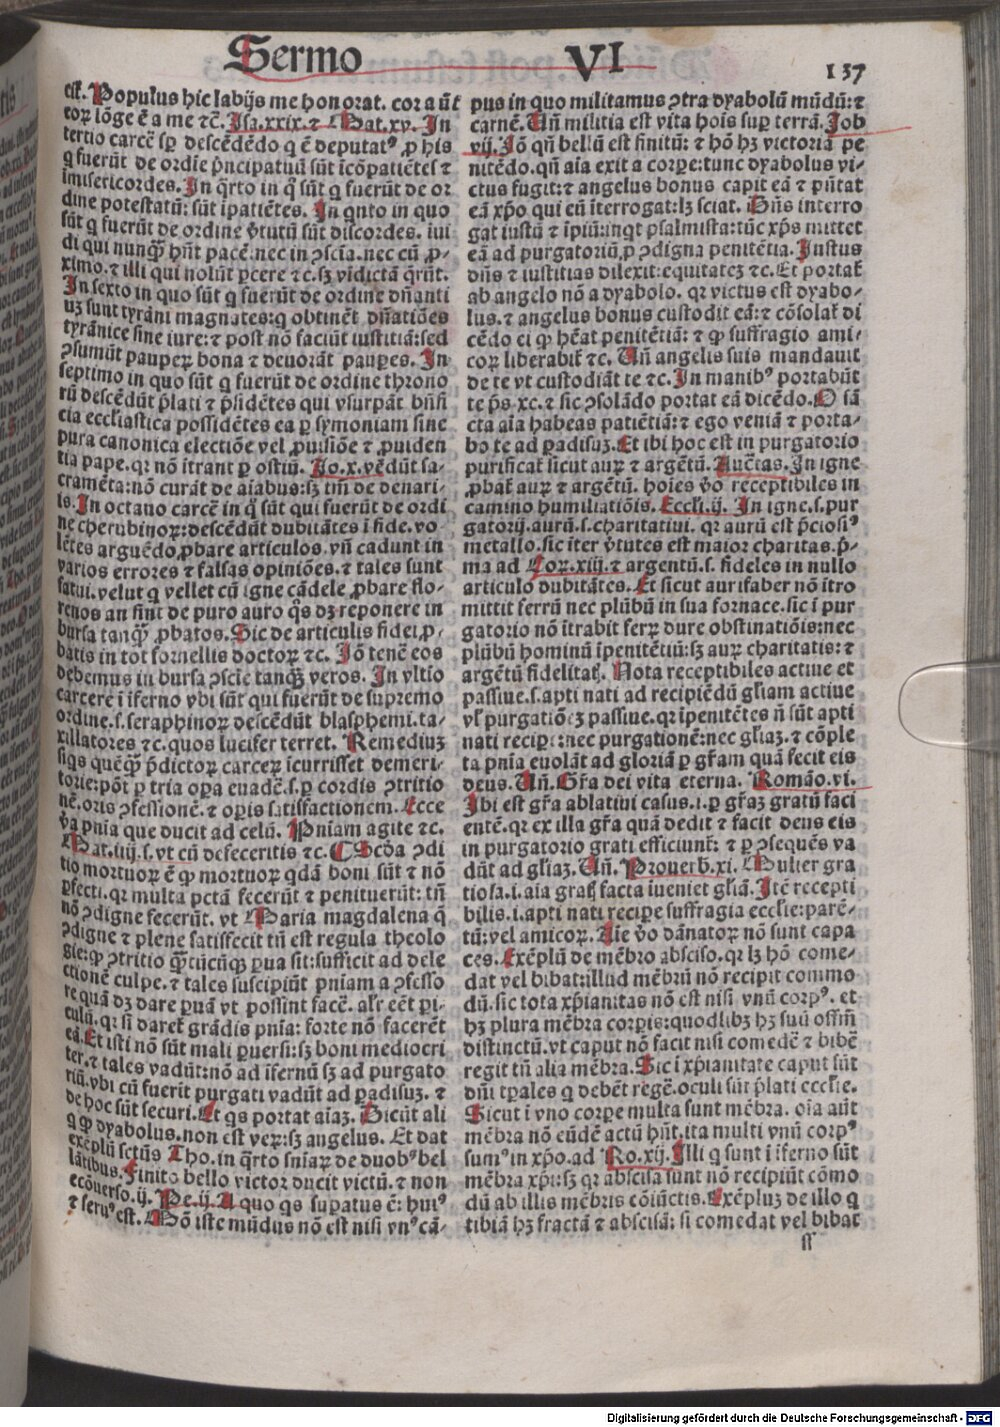 Sermo VI 137
est. Populus hic labijs me honorat. cor aūt
eoꝝ lōge ē a me ⁊c̄. Isa.xxix.⁊ Mat.xv. In
tertio carcē sꝑ descēdēdo q ē deputatꝰ ꝓ his
q fuerūt de ordīe p̄ncipatuū sūt icōpatiētes ⁊
īmisericordes. In q̄rto in q̄ sūt q fuerūt de or
dine potestatū: sūt ipatiētes. In qnto in quo
sūt q fuerūt de ordine v̄tutū sūt discordes. iui
di qui nunqꝫ hn̄t pacē. nec in ꝯscīa. nec cū ꝓ-
ximo. ⁊ illi qui nolūt ꝑcere ⁊c. sꝫ vīdictā q̄rūt.
In sexto in quo sūt q fuerūt de ordine dn̄anti
uꝫ sunt tyrāni magnates: q obtinēt dn̄atiōes
tyrānice sine iure: ⁊ post nō faciūt iustitiā: sed
ꝯsumūt pauperꝝ bona ⁊ deuorāt pauꝑes. In
septimo in quo sūt q fuerūt de ordine throno
rū descēdūt p̄lati ⁊ p̄sidētes qui vsurpāt bn̄fi
cia ecclīastica possidētes ea ꝑ symoniam sine
pura canonica electiōe vel ꝓuisiōe ⁊ ꝓuiden
tia pape. qꝛ nō itrant ꝑ ostiū. Jo.x. vēdūt sa-
cramēta: nō curāt de aīabus: sꝫ tm̄ de denari-
is. In octauo carcē in q̄ sūt qui fuerūt de ordi
ne cherubinoꝝ: descēdūt dubitātes i fide. vo-
lētes arguēdo ꝓbare articulos. vn̄ cadunt in
varios errores ⁊ falsas opiniōes. ⁊ tales sunt
fatui. velut q vellet cū igne cādele ꝓbare flo-
renos an sint de puro auro q̄s dꝫ reponere in
bursa tanqꝫ ꝓbatos. Sic de articulis fidei ꝓ-
batis in tot fornellis doctoꝝ ⁊c. Jō tenē eos
debemus in bursa ꝯscīe tanqꝫ veros. In vltīo
carcere ī īferno vbi sūt qui fuerūt de supremo
ordine. s. seraphinoꝝ descēdūt blasphemi. ta-
xillatores ⁊c. quos lucifer terret. Remediuꝫ
siqs quēqꝫ p̄dictoꝝ carceꝝ īcurrisset demeri-
torie: pōt ꝑ tria oꝑa euadē. s. ꝑ cordis ꝯtritio
nē. oris ꝯfessionē. ⁊ oꝑis satisfactionem. Ecce
v̄a pn̄ia que ducit ad celū. Pn̄iam agite ⁊c.
Mat.iiij. s. vt cū defeceritis ⁊c. ¶ Scd̄a ꝯdi
tio mortuoꝝ ē ꝙ mortuoꝝ qdā boni sūt ⁊ nō
ꝑfecti. qꝛ multa pctā fecerūt ⁊ penituerūt: tn̄
nō ꝯdigne fecerūt. vt Maria magdalena q̄
ꝯdigne ⁊ plene satisfecit tn̄ est regula theolo
gie: ꝙ ꝯtritio qꝫtūcūqꝫ ꝑua sit: sufficit ad dele
ctionē culpe. ⁊ tales suscipiūt pn̄iam a ꝯfesso
re quā dꝫ dare ꝑuā vt possint facē. alr̄ eēt ꝑi-
culū. qꝛ si darēt grādis pn̄ia: forte nō facerēt
eā. Et isti nō sūt mali ꝑuersi: sꝫ boni mediocri
ter. ⁊ tales vadūt: nō ad ifernū sꝫ ad purgato
riū. vbi cū fuerit purgati vadūt ad ꝑadisuꝫ. ⁊
de hoc sūt securi. Et qs portat aīaꝫ. Dicūt ali
q ꝙ dyabolus. non est veꝝ: sꝫ angelus. Et dat
exēplū sctūs Tho. in q̄rto sn̄iaꝝ de duobꝰ bel
lātibus. Finito bello victor ducit victū. ⁊ non
ecōuerso. ij. Pe.ij. A quo qs supatus ē: huiꝰ
⁊ seruꝰ est. Mō iste mūdus nō est nisi vnꝰ cā-
pus in quo militamus ꝯtra dyabolū mūdū: ⁊
carnē. Un̄ militia est vita hoīs suꝑ terrā. Job
vij. Jō qn̄ bellū est finitū: ⁊ hō hꝫ victoriā pe
nitēdo. qn̄ aīa exit a corꝑe: tunc dyabolus vi-
ctus fugit: ⁊ angelus bonus capit eā ⁊ pn̄tat
eā xp̄o qui eū īterrogat: lꝫ sciat. Dn̄s interro
gat iustū ⁊ īpiū: inqt psalmista: tūc xp̄s mittet
eā ad purgatoriū. ꝓ ꝯdigna penitētia. Justus
dn̄s ⁊ iustitias dilexit: equitateꝫ ⁊c. Et portat̄
ab angelo nō a dyabolo. qꝛ victus est dyabo-
lus. ⁊ angelus bonus custodit eā: ⁊ cōsolat̄ di
cēdo ei ꝙ hēat penitētiā: ⁊ ꝙ suffragio ami-
coꝝ liberabit̄ ⁊c. Un̄ angelis suis mandauit
de te vt custodiāt te ⁊c. In manibꝰ portabūt
te p̄s xc. ⁊ sic ꝯsolādo portat eā dicēdo. O sā
cta aīa habeas patiētiā: ⁊ ego veniā ⁊ porta-
bo te ad ꝑadisuꝫ. Et ibi hoc est in purgatorio
purificat̄ sicut auꝝ ⁊ argētū. Auctītas. In igne
ꝓbat̄ auꝝ ⁊ argētū. hoīes v̄o receptibiles in
camino humiliatiōis. Eccli.ij. In igne. s. pur
gatorij. aurū. s. charitatiui. qꝛ aurū est p̄ciosiꝰ
metallo. sic iter v̄tutes est maior charitas. p̄-
ma ad Coꝝ.xiij. ⁊ argentū. s. fideles in nullo
articulo dubitātes. Et sicut aurifaber nō itro
mittit ferrū nec plūbū in sua fornace. sic i pur
gatorio nō itrabit feꝝ dure obstinatiōis: nec
plūbū hominū ipenitētiū: sꝫ auꝝ charitatis: ⁊
argētū fidelitatꝭ. Nota receptibiles actiue et
passiue. s. apti nati ad recipiēdū gl̄iam actiue
vl̓ purgatiōeꝫ passiue. qꝛ ipenitētes n̄ sūt apti
nati reciꝑe: nec purgationē: nec gl̄iaꝫ. ⁊ cōple
ta pn̄ia euolāt ad gloriā ꝑ gr̄am quā fecit eis
deus. Un̄. Gr̄a dei vita eterna. Romāo.vi.
Ibi est gr̄a ablatiui casus. i. ꝑ gr̄aꝫ gratū faci
entē. qꝛ ex illa gr̄a quā dedit ⁊ facit deus eis
in purgatorio grati efficiunt̄: ⁊ ꝑ ꝯseqꝰēs va
dūt ad gl̄iaꝫ. Un̄. Prouerb.xi. Mulier gra
tiosa. i. aīa gratꝭ facta iueniet gl̄iā. Itē recepti
bilis. i. apti nati reciꝑe suffragia eccl̄ie: parē-
tū: vel amicoꝝ. Aīe v̄o dānatoꝝ nō sunt capa
ces. Exēplū de mēbro absciso. qꝛ lꝫ hō come-
dat vel bibat: illud mēbrū nō recipit commo
dū. sic tota xp̄ianitas nō est nisi vnū corpꝰ. et
hꝫ plura mēbra corꝑis: quodlibꝫ hꝫ suū offm̄
distinctū. vt caput nō facit nisi comedē ⁊ bibē
regit tn̄ alia mēbra. Sic i xp̄ianitate caput sūt
dn̄i tꝑales q debēt regē. oculi sūt p̄lati eccl̄ie.
Sicut i vno corꝑe multa sunt mēbra. oīa aūt
mēbra nō eūdē actū hn̄t. ita multi vnū corpꝰ
sumꝰ in xp̄o. ad Ro.xij. Illi q sunt i īferno sūt
mēbra xp̄i: sꝫ qꝛ abscisa sunt nō recipiūt cōmo
dū ab illis mēbris cōiūctis. Exēpluꝫ de illo q
tibiā hꝫ fractā ⁊ abscisā: si comedat vel bibat
ſſ
Digitalisierung gefördert durch die Deutsche Forschungsgemeinschaft - DFG